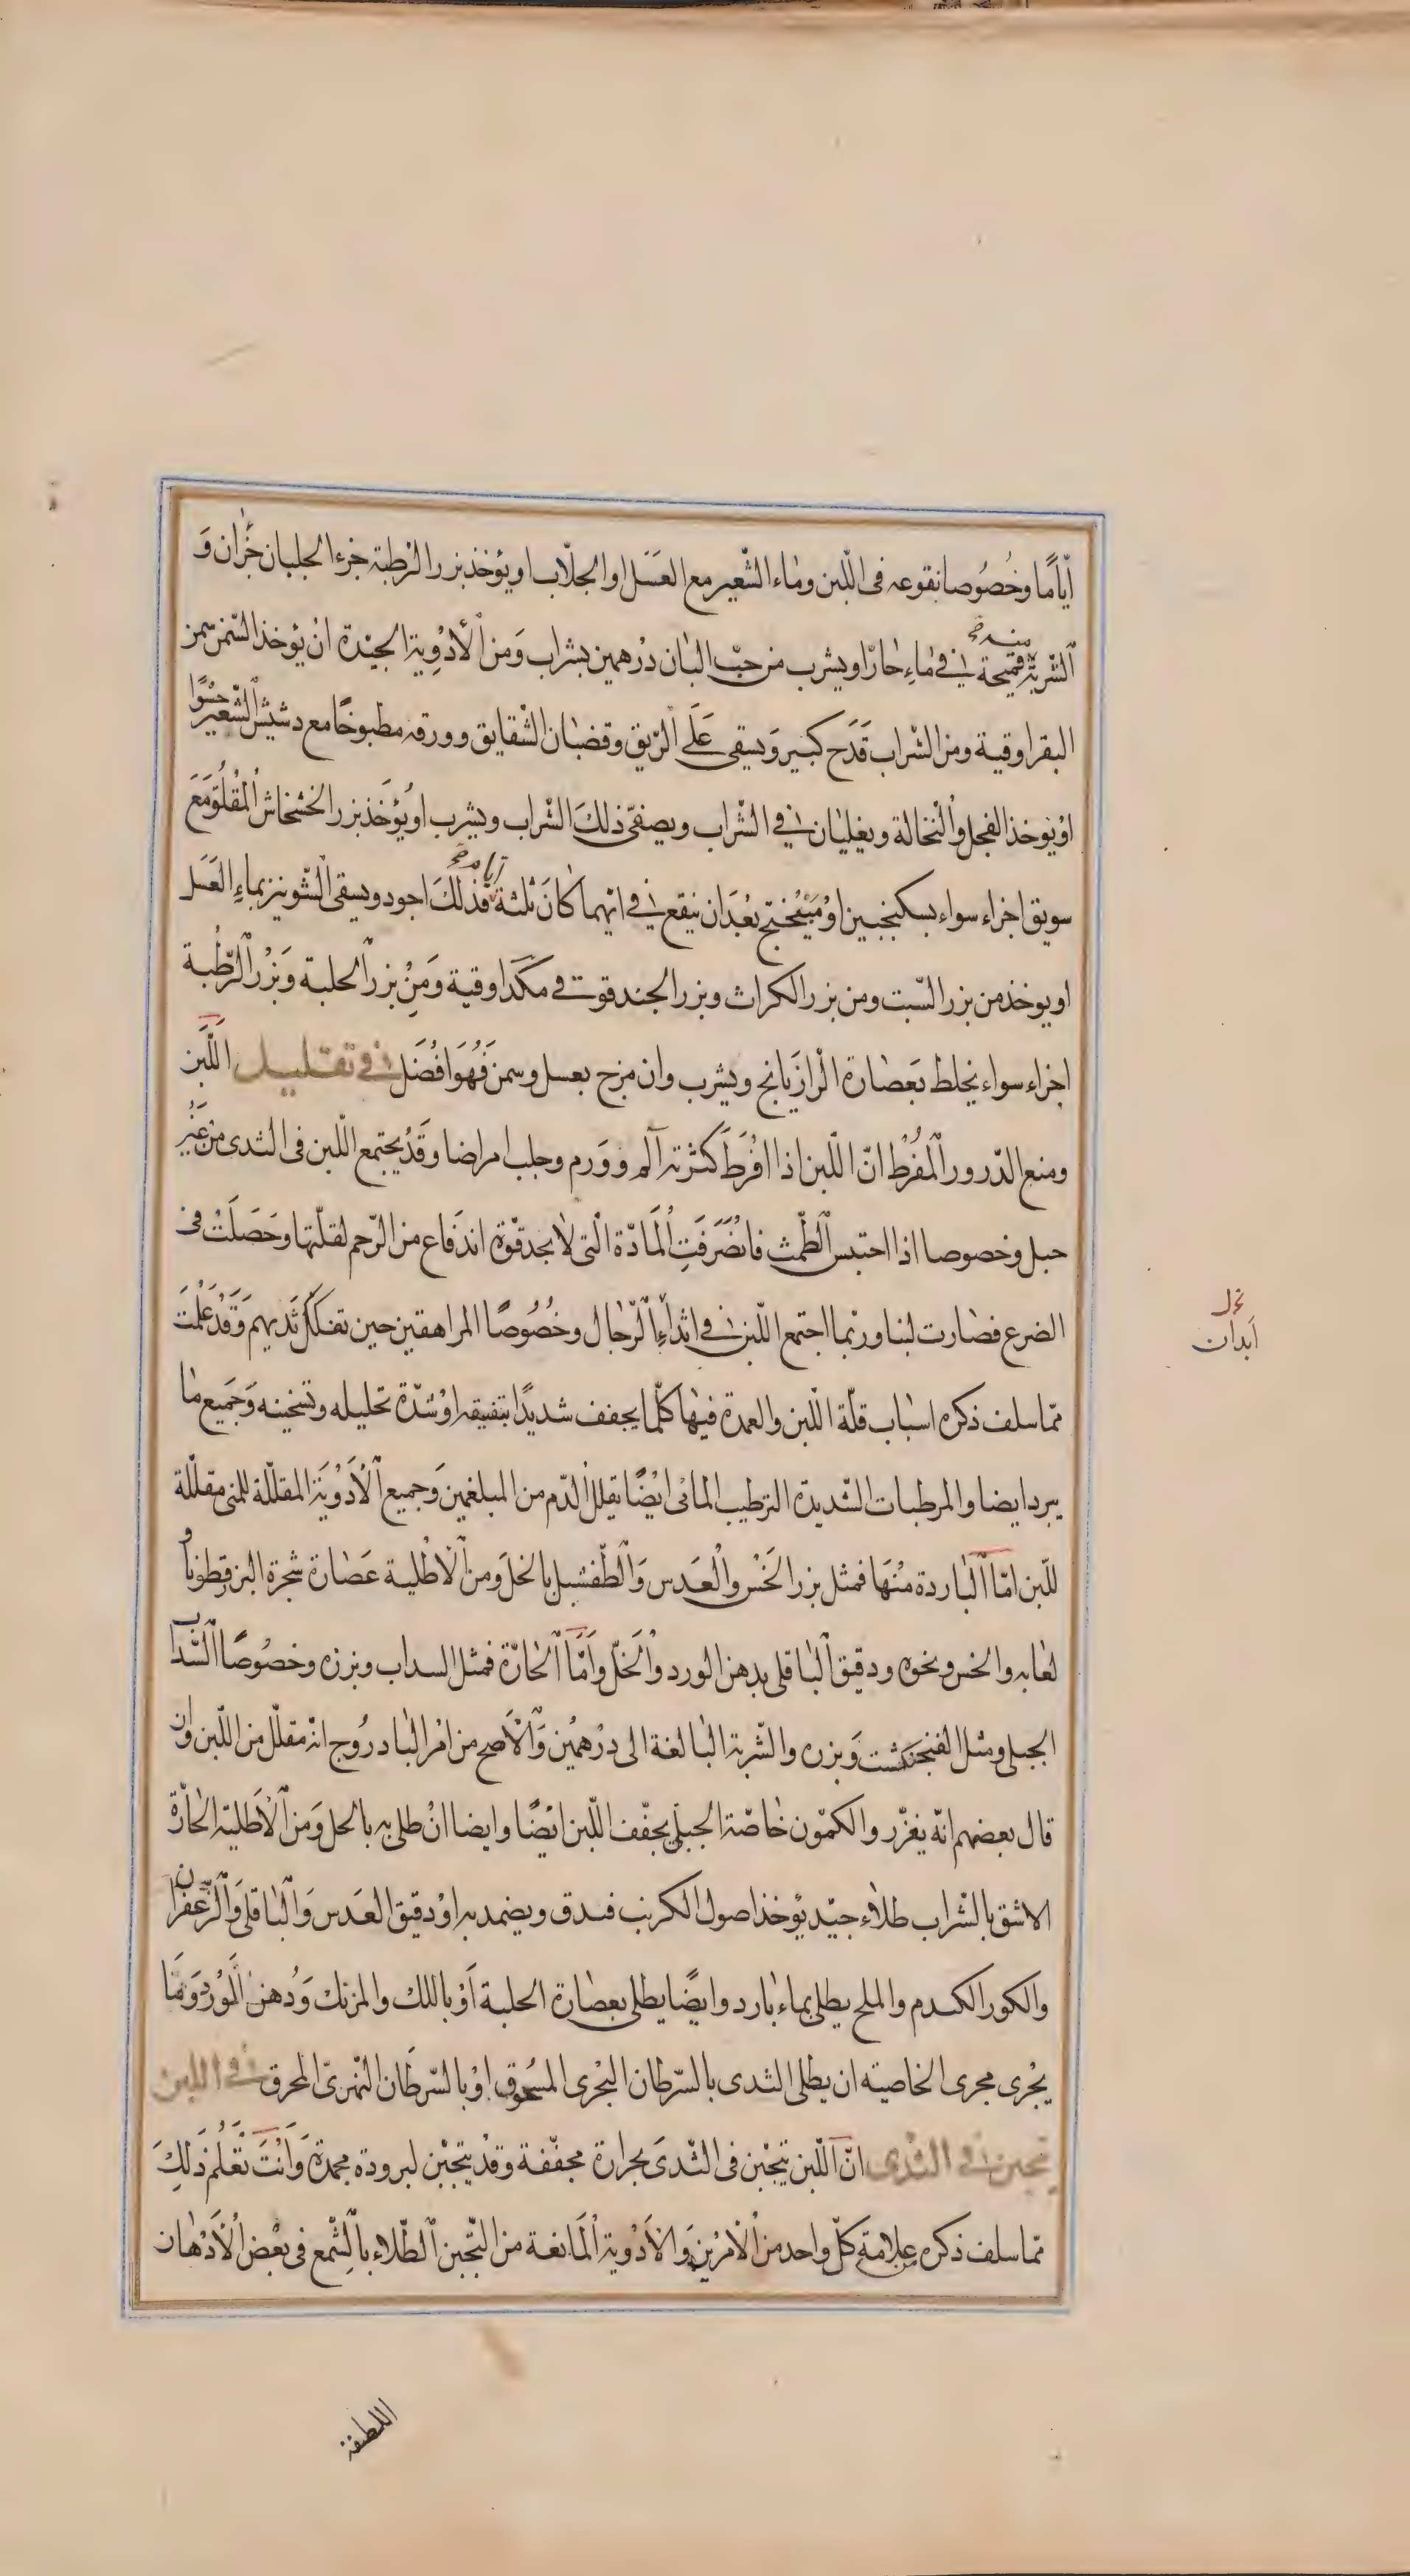 أيّامًا وخُصُوصا نقوعه فى اللّبن وماء الشّعير مع العَسَل او الجلّاب او يؤخذ بزر الرّطبة جزء الجلبان جُزان وَ
الشّربة منه صح قميحة فى ماءِ حارّ او يشرب من حبّ البان درهمين بشراب وَمن الأدْوِية الجيّدة انْ يؤخذ السّمن من
البقر اوقية ومن الشّراب قَدَح كبير وَيسقى عَلَى الرّيق وقضبان الشقايق وورقه مطبوخًا مع دشيش الشّعير حسْوًا
اوْ يوخذ الفجل والنّخالة ويغليان فى الشّراب ويصفىّ ذلكَ الشّراب ويشرب او يُؤخَذ بزر الخشخاش المقلُوّ مَعَ
سويق اجزاء سواء بسكنجبين اوْ ميْفختج بَعْدَ ان ينقع فى ايّهما كانَ ثلثة ايام صح فذلكَ اجود ويسقى الشّونيز بماءِ العَسَل
او يوخذ من بزر السّبت ومن بزر الكراث وبزر الجندقوت فى مكدَ اوقية وَمِنْ بزر الحلبة وَبزْر الرّطْبة
اجزاء سواء يخلط بَعصارة الرّازيانج ويشرب وان مزج بعسل وسمن فَهُوَ افْضَل فى تقليل اللَّبَن
ومنع الدّرور المُفْرط انّ اللّبن اذا افْرَطَ كثرته آلم وورم وجلب امراضا وقَدْ يجتمع اللّبن فى الثدى من غَيْر
حبل وخصوصا اذا احتبس الطّمث فانْصَرَفَتِ المَادّة الّتى لا يجد قوّة اندَفاع من الرّحم لقلّتها وحَصَلَتْ فى
الضرع فصارت لبنا وربّما اجتمع اللّبن فى اثداءِ الرّجال وخُصُوصًا المراهقين حين تفلكّ ثَديهم وَقَدْ عَلمْتَ
ممّا سلف ذكره اسباب قلّة اللّبن والعمدة فيها كلّما يجفف شديدًا بتفيقه اوْ شدّة تحليله وتسخينه وَجَميع ما
يبرد ايضا والمرطبات الشّديدة الترطيب المائى ايْضًا يقلل الدّم من المبلغمين وَجميع الأدْوِيَة المقلّلة للمنى مقلّلة
للّبن امّا الباردة منْهَا فمثل بزر الخَسْ والعَدَس وَالطّفشيل بالخل وَمن الاطْلية عَصارة شجرة البزرقطونا وْ
لعابه والخس ونحوه ودقيق الباقلى بدهن الورد والخلّ وامَّا الحارّة فمثل السداب وبزره وخصُوصًا السّداب
الجبلى ومثل الفنجنكشت وَبزره والشّربة البالغة الى درْهمْين وَالأصح من امْر البادروْج انّه مقلّل من اللّبن وان
قال بعضهم انّه يغزّر والكمّون خاصّة الجبلى يجفّف اللّبن ايْضًا وايضا انْ طلى به بالحل وَمن الأطلية الحارّة
الاشق بالشّراب طلاء جيّد يؤخذ اصول الكرنب فيدق ويضمد به اوْ دقيق العَدَس وَالباقلى وَالزّعْفران
والكور الكدم والملح يطلى بماء بارد وايضًا يطلى بعصارة الحلبة اَوْ باللك والمرتك وَدُهن الْوَرْد وَمَا
يجْرى مجرى الخاصية ان يطلى الثدى بالسّرطان البحْرى المسْحوق اوْ بالسّرطَان النّهرىّ المحرق فى اللبن
يتجبن فى الثدى انّ اللّبن يتجبْن فى الثّدىَ بحرارة مجفّفة وقدْ يتجبْن لبرودة مجمدة وَانْتَ تَعْلَم ذلِكَ
ممّا سلف ذكره علامة كلّ واحد من الأمْرَيْن وَالأدْوية المَانعة من التّجبن الطّلاء بالشّمع فى بعْض الأدْهان
اللطيفة
نحل
ابدان